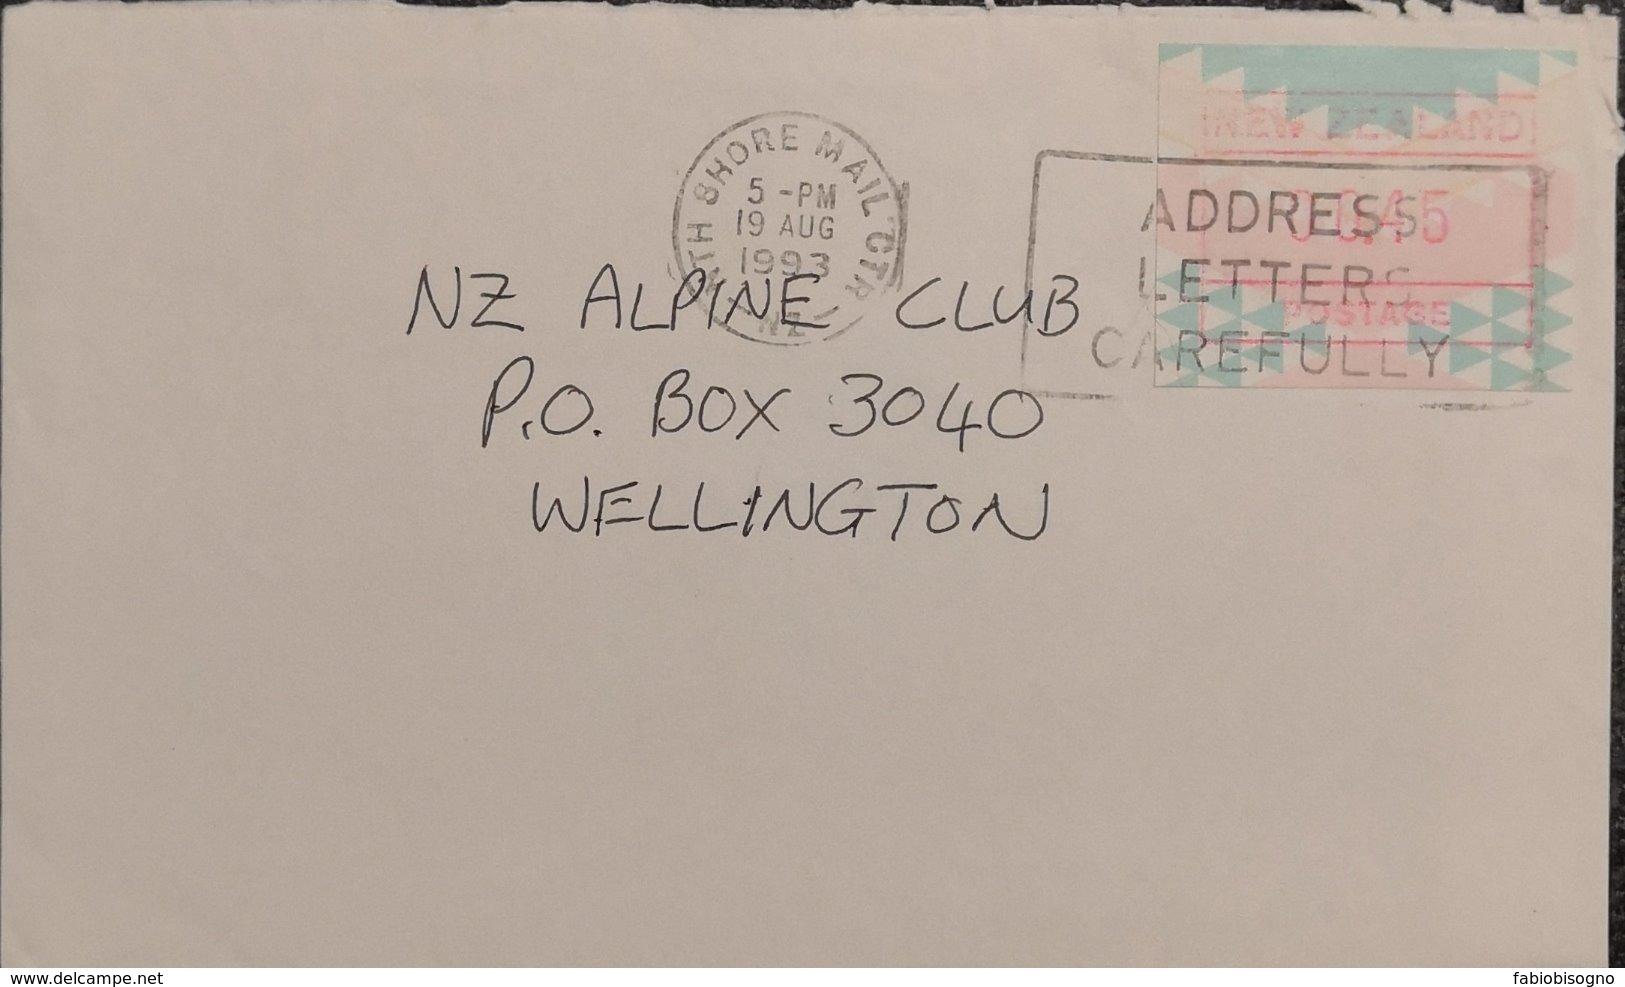 NTH SHORE MAIL CTR
5 -PM
19 AUG
1993
NZ
NEW ZEALAND
00.45
POSTAGE
ADDRESS
LETTERS
CAREFULLY
NZ ALPINE CLUB
P.O. BOX 3040
WELLINGTON
www.delcampe.net
fabiobisogno